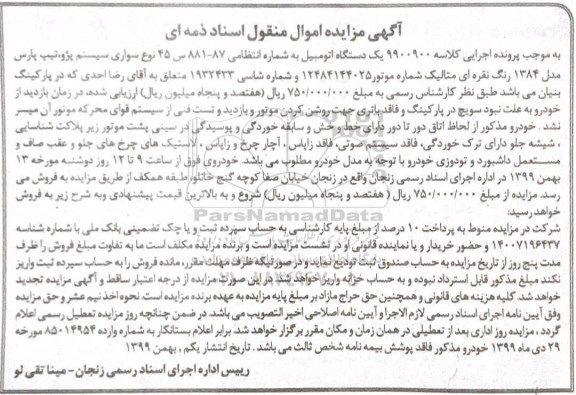 آگهی مزایده اموال منقول اسناد ذمه ای
به موجب پرونده اجرایی کلاسه ۹۹۰۰۹۰۰ یک دستگاه اتومبیل به شماره انتظامی ۸۷-۸۸۱ س ۴۵ نوع سواری سیستم پژو،تیپ پارس
مدل ۱۳۸۴ رنگ نقره ای متالیک شماره موتور ۱۲۴۸۴۱۴۴۰۲۵ و شماره شاسی ۱۹۳۲۴۳۳ متعلق به آقای رضا احدی که در پارکینگ
بنیان می باشد طبق نظر کارشناس رسمی به مبلغ ۷۵۰/۰۰۰/۰۰۰ ریال (هفتصد و پنجاه میلیون ریال) ارزیابی شده، در زمان بازدید از
خودرو به علت نبود سویچ در پارکینگ و فاقد باتری جهت روشن کردن موتور و بازدید و تست فنی از سیستم قوای محرکه موتور آن میسر
نشد . خودرو مذکور از لحاظ اتاق دور تا دور دارای چند و خش و سابقه خوردگی و پوسیدگی در سینی پشت موتور زیر پلاکت شناسایی
، شیشه جلو دارای ترک خوردگی، فاقد سیستم صوتی، فاقد زاپاس ، آچار چرخ و زاپاس . لاستیک های چرخ های جلو و عقب صاف و
مستعمل داشبورد و تودوزی خودرو با توجه به مدل خودرو مطلوب می باشد. خودروی فوق از ساعت ۹ تا ۱۲ روز دوشنبه مورخه ۱۳
بهمن ۱۳۹۹ در اداره اجرای اسناد رسمی زنجان واقع در زنجان خیابان صفا کوچه گنج خانلو طبقه همکف از طریق مزایده به فروش می
رسد. مزایده از مبلغ ۷۵۰/۰۰۰/۰۰۰ ریال ( هفتصد و پنجاه میلیون ریال) شروع و به بالاترین قیمت پیشنهادی وبه شرح زیر به فروش
خواهد رسید:
شرکت در مزایده منوط به پرداخت ۱۰ درصد از مبلغ پایه کارشناسی به حساب سپرده ثبت و یا چک تضمینی بانک ملی با شماره شناسه
۱۴۰۰۷۱۹۶۴۳۷ و حضور خریدار و یا نماینده قانونی او در نشست مزایده است و برنده مزایده مکلف است ما به تفاوت مبلغ فروش را ظرف
مدت پنج روز از تاریخ مزایده به حساب صندوق ثبت تودیع نماید و در صورتیکه ظرف مهلت مقرر، مانده فروش را به حساب سپرده ثبت واریز
نکند مبلغ مذکور قابل استرداد نبوده و به حساب خزانه واریز خواهد شد در این صورت مزایده از درجه اعتبار ساقط و آگهی مزایده تجدید
خواهد شد. کلیه هزینه های قانونی و همچنین حق حراج مازاد بر مبلغ پایه مزایده به عهده برنده مزایده است. نحوه اخذ نیم عشر و حق مزایده
وفق آیین نامه اجرای اسناد رسمی لازم الاجرا و آیین نامه اصلاحی اخیر التصویب می باشد. در ضمن چنانچه روز مزایده تعطیل رسمی اعلام
گردد ، مزایده روز اداری بعد از تعطیلی در همان زمان و مکان مقرر برگزار خواهد شد. برابر اعلام بستانکار به شماره وارده ۸۵۰۱۴۹۵۴ مورخه
۲۹ دی ماه ۱۳۹۹ خودرو مذکور فاقد پوشش بیمه نامه شخص ثالث می باشد . تاریخ انتشار یکم , بهمن ۱۳۹۹
رییس اداره اجرای اسناد رسمی زنجان - مینا تقی لو
ParsNamadData